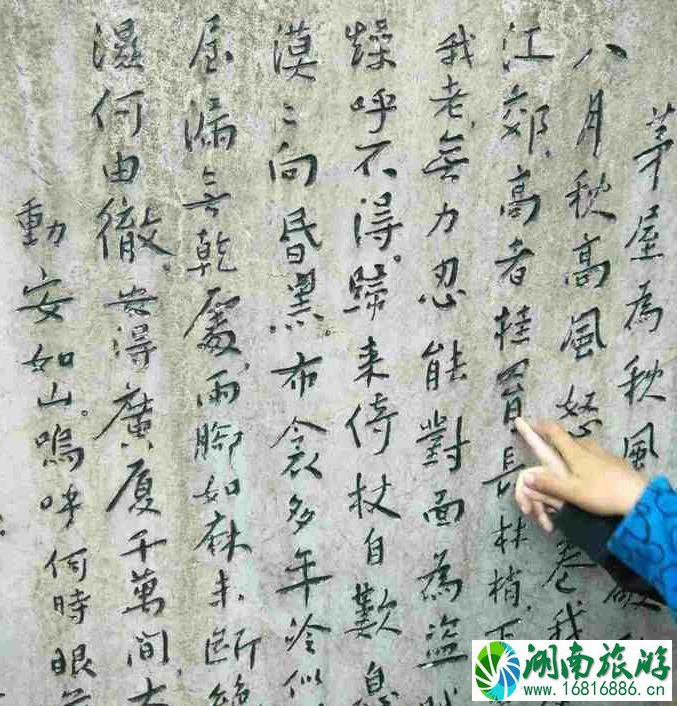 茅屋為秋風
八月秋高風怒卷我
江郊,高者挂罥長林梢,下
我老,無力忍能對面為盜
燥呼不得。歸来倚杖自歎息
漠〻向昏黑。布衾多年冷似
屋漏無乾處,雨腳如麻未断絕
濕何由徹。安得廣厦千萬間,大
動安如山。嗚呼何時眼前
湖南旅游
www.16816886.cn